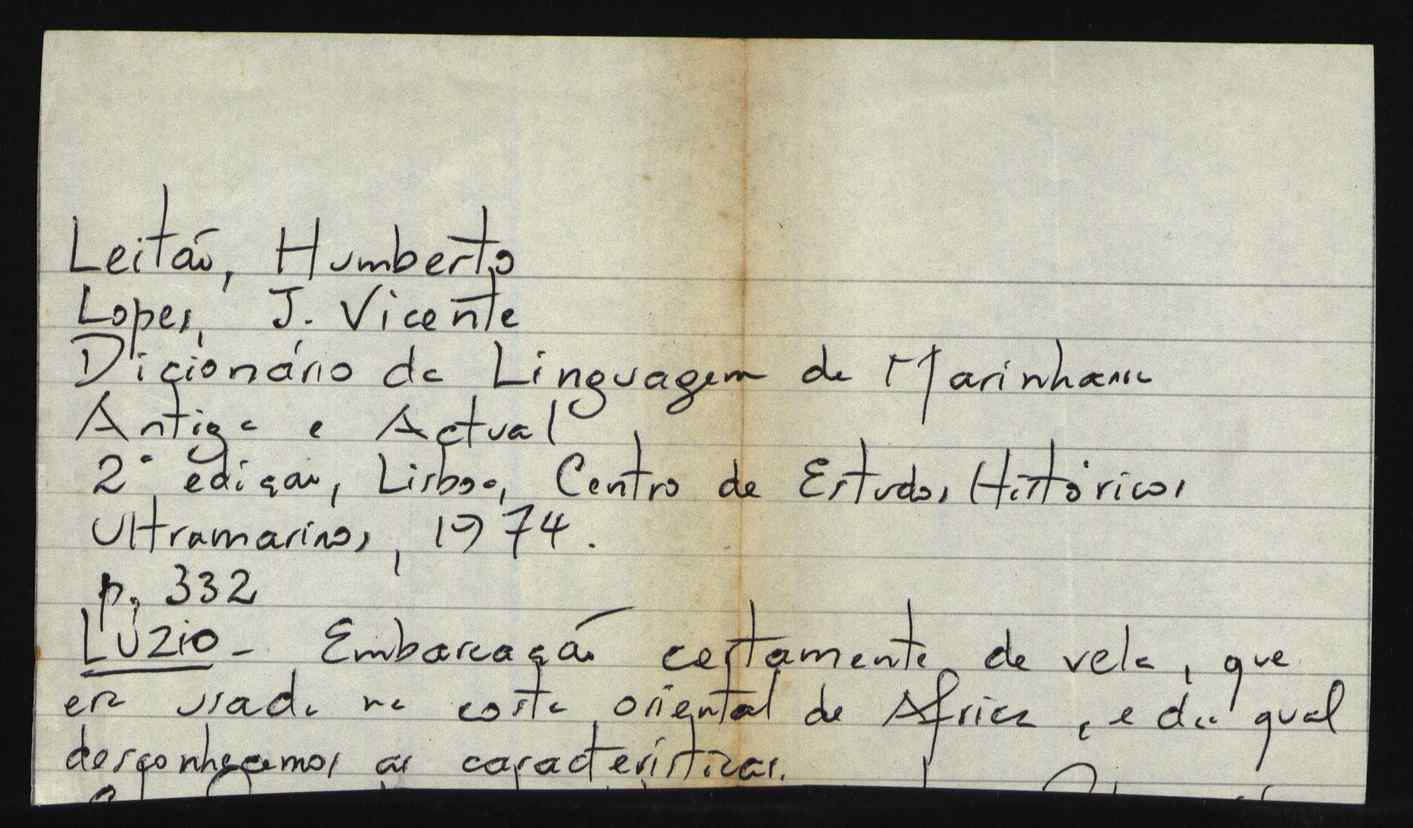 Leitão, Humberto
Lopes, J. Vicente
Dicionário da Linguagem de Marinha
Antiga e Actual
2ª edição, Lisboa, Centro de Estudos Históricos
Ultramarinos, 1974.
p. 332
LÚZIO - Embarcação certamente de vela, que
era usada na costa oriental de África, e da qual
desconhecemos as características.